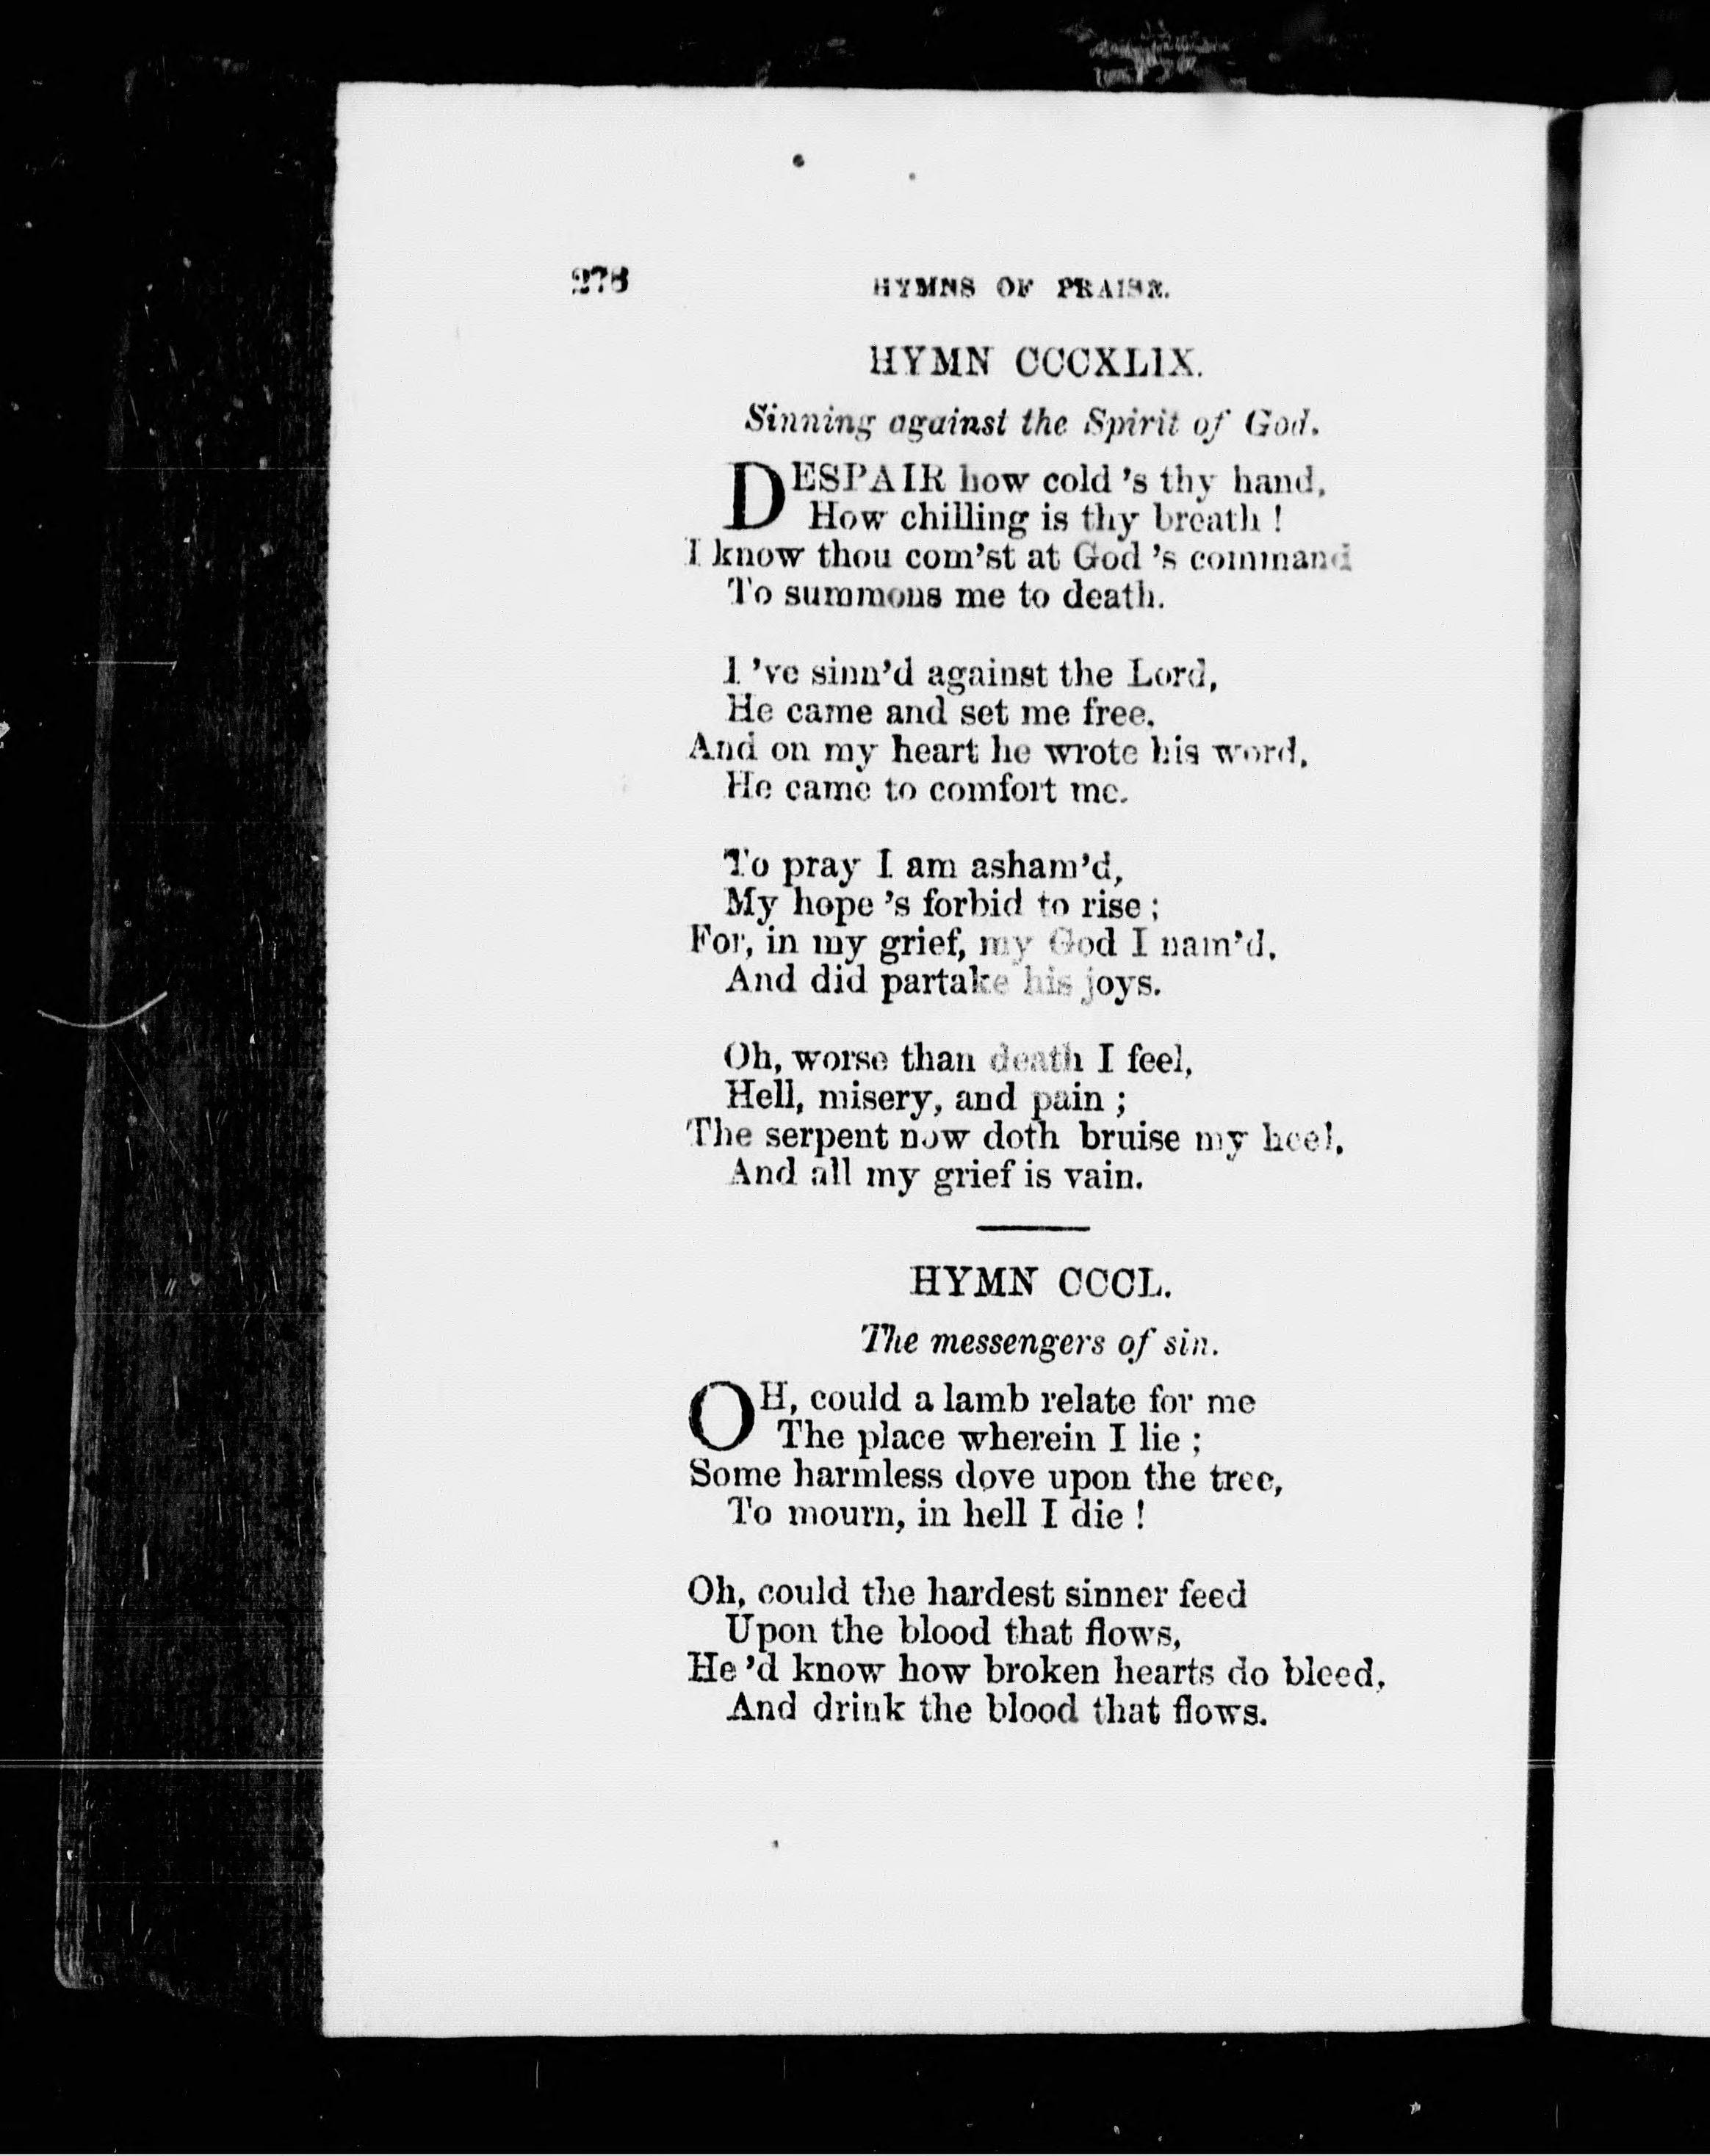 278 HYMNS OF PRAISE.
HYMN CCCXLIX.
Sinning against the Spirit of God.
DESPAIR how cold 's thy hand,
How chilling is thy breath !
I know thou com'st at God 's command
To summons me to death.
I 've sinn'd against the Lord,
He came and set me free,
And on my heart he wrote his word,
He came to comfort me.
To pray I am asham'd,
My hope 's forbid to rise ;
For, in my grief, my God I nam'd,
And did partake his joys.
Oh, worse than death I feel,
Hell, misery, and pain ;
The serpent now doth bruise my heel,
And all my grief is vain.
HYMN CCCL.
The messengers of sin.
OH, could a lamb relate for me
The place wherein I lie ;
Some harmless dove upon the tree,
To mourn, in hell I die !
Oh, could the hardest sinner feed
Upon the blood that flows,
He 'd know how broken hearts do bleed,
And drink the blood that flows.